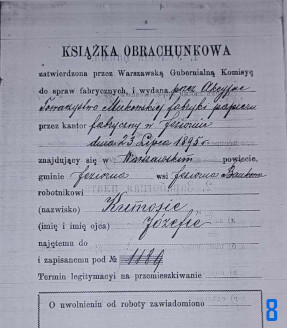 KSIĄŻKA OBRACHUNKOWA
zatwierdzona przez Warszawską Gubernialną Komisyę
do spraw fabrycznych, i wydaną przez Akcyjne
Towarzystwo Mirkowskiej fabryki papieru
przez kantor fabryczny w Jeziornie
dnia 23 Lipca 1895 r
znajdujący się w Warszawskim powiecie,
gminie Jeziorna wsi Jeziorna
robotnikowi
(nazwisko)
(imię i imię ojca) Józefie
najętemu do
i zapisanemu pod № 1189
Termin legitymacyi na przemieszkiwanie
O uwolnieniu od roboty zawiadomiono
8